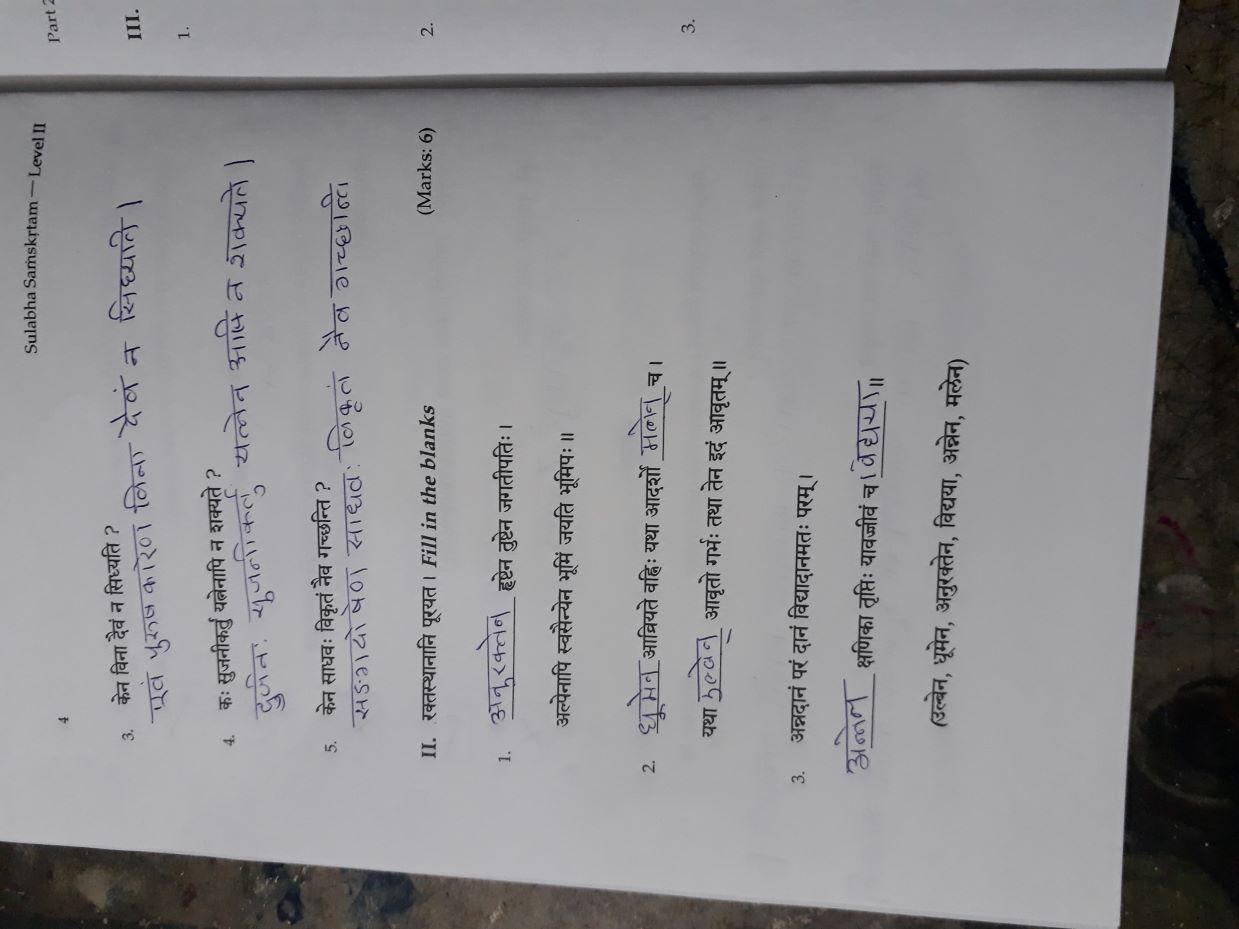 Sulabha Saṁskṛtam — Level II
4
3. केन विना दैवं न सिध्यति ?
एवं पुरुषकारेण विना दैवं न सिध्यति ।
4. कः सुजनीकर्तु यत्नेनापि न शक्यते ?
दुर्जनः सुजनीकर्तु यत्नेन अपि न शक्यते ।
5. केन साधवः विकृतं नैव गच्छन्ति ?
सङगदोषेण साधवः विकृतं नैव गच्छन्ति
II. रक्तस्थानानि पूरयत । Fill in the blanks (Marks: 6)
1. अनुरक्तेन हृष्टेन तुष्टेन जगतीपतिः ।
अल्पेनापि स्वसैन्येन भूमिं जयति भूमिपः ॥
2. धूमेन आव्रियते वह्निः यथा आदर्शो मलेन च ।
यथा उल्बेन आवृतो गर्भः तथा तेन इदं आवृतम् ॥
3. अन्नदानं परं दानं विद्यादानमतः परम् ।
अन्नेन क्षणिका तृप्तिः यावज्जीवं च विद्यया ॥
(उल्बेन, धूमेन, अनुरक्तेन, विद्यया, अन्नेन, मलेन)
Part 2
III.
1.
2.
3.